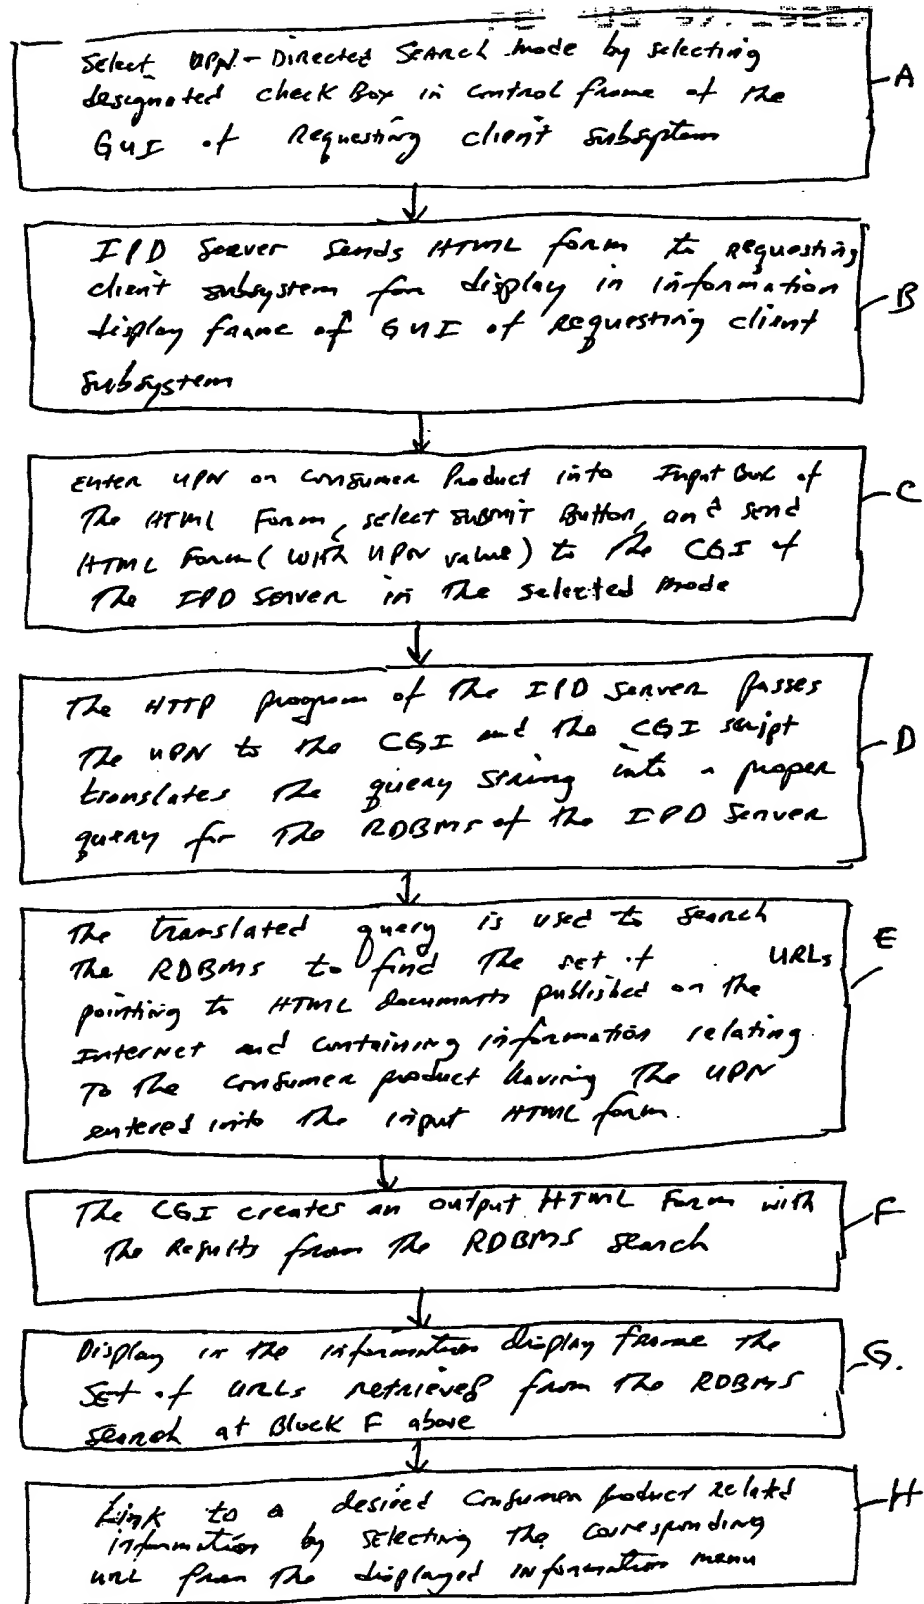 Select UPN-Directed Search mode by selecting
designated check Box in control frame of the
GUI of Requesting client subsystem
A
IPD Server sends HTML form to requesting
client subsystem for display in information
display frame of GUI of requesting client
subsystem
B
Enter UPN on Consumer Product into Input Box of
the HTML Form, select submit Button, and send
HTML Form (with UPN value) to the CGI of
the IPD Server in the selected mode
C
The HTTP program of the IPD server passes
the UPN to the CGI and the CGI script
translates the query string into a proper
query for the RDBMS of the IPD Server
D
The translated query is used to search
the RDBMS to find the set of URLs
pointing to HTML documents published on the
Internet and containing information relating
to the consumer product having the UPN
entered into the input HTML form.
E
The CGI creates an output HTML Form with
the Results from the RDBMS search
F
Display in the information display frame the
Set of URLs retrieved from the RDBMS
search at Block F above
G.
Link to a desired consumer product related
information by selecting the corresponding
URL from the displayed information menu
H